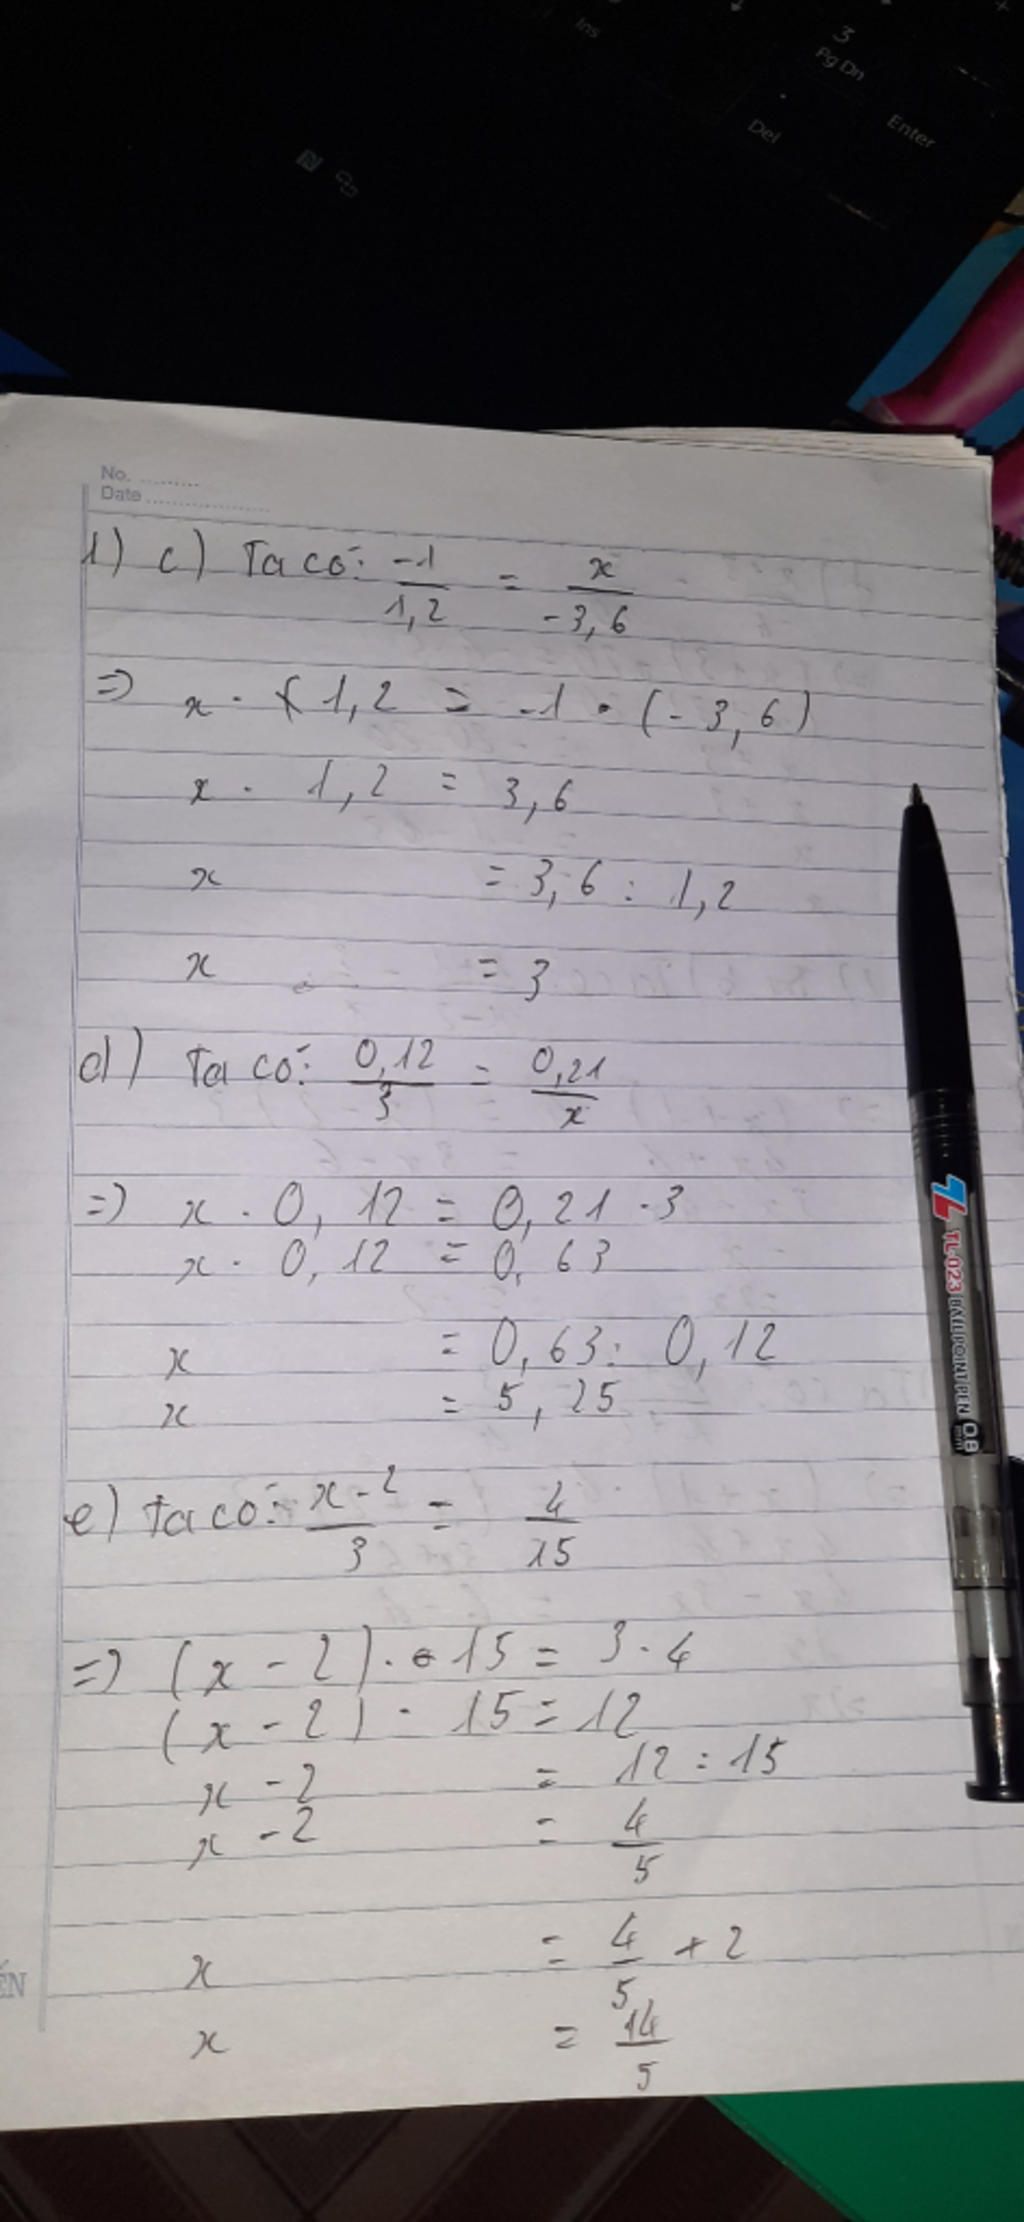 Ins
3
Pg Dn
Del
Enter
No. ..........
Date ....................
1) c) Ta có: -1/1,2 = x/-3,6
=> x . 1,2 = -1 . (-3,6)
x . 1,2 = 3,6
x = 3,6 : 1,2
x = 3
d) Ta có: 0,12/3 = 0,21/x
=> x . 0,12 = 0,21 . 3
x . 0,12 = 0,63
x = 0,63 : 0,12
x = 5,25
e) Ta có: x - 2/3 = 4/15
=> (x - 2) . 15 = 3 . 4
(x - 2) . 15 = 12
x - 2 = 12 : 15
x - 2 = 4/5
x = 4/5 + 2
x = 14/5
TL-023 BALLPOINT PEN 0.8 mm